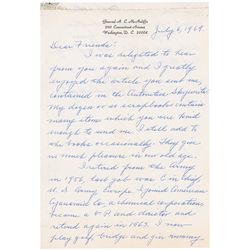 General A. C. McAuliffe
Washington, D. C. 20008
July 6, 1969
Dear Friends:
I was delighted to hear
from you again and I greatly
enjoyed the article you sent me,
contained in the Automated
My dozen or so scrapbooks contain
many items which you were kind
enough to send me. I still add to
the books occasionally. They give
us much pleasure in our old age.
I retired from the Army
in 1956, last job was C in Chief,
U.S. Army Europe. I joined American
Cyanamid Co, a chemical corporation,
became a V P and director and
retired again in 1963. I now
play golf, bridge and gin rummy